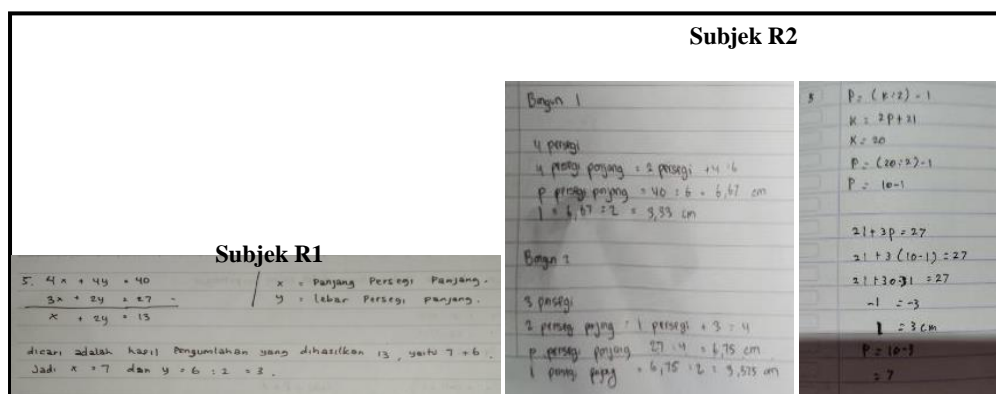 Subjek R2
Subjek R1
5. 4x + 4y = 40
3x + 2y = 27 -
x + 2y = 13
x = Panjang Persegi Panjang.
y = lebar Persegi panjang.
dicari adalah hasil Pengumlahan yang dihasilkan 13, yaitu 7 + 6.
Jadi x = 7 dan y = 6 : 2 = 3.
Bangun 1
4 persegi
4 persegi panjang = 2 persegi + 4 : 6
p persegi panjang = 40 : 6 = 6,67 cm
l = 6,67 : 2 = 3,33 cm
Bangun 2
3 persegi
2 persegi panjang = 1 persegi + 3 = 4
p persegi panjang 27 : 4 = 6,75 cm
l persegi panjang = 6,75 : 2 = 3,375 cm
5 P = (K:2) - l
K = 2P + 2l
K = 20
P = (20:2) - l
P = 10 - l
2l + 3p = 27
2l + 3 (10-l) = 27
2l + 30-3l = 27
-l = -3
l = 3 cm
P = 10-3
= 7